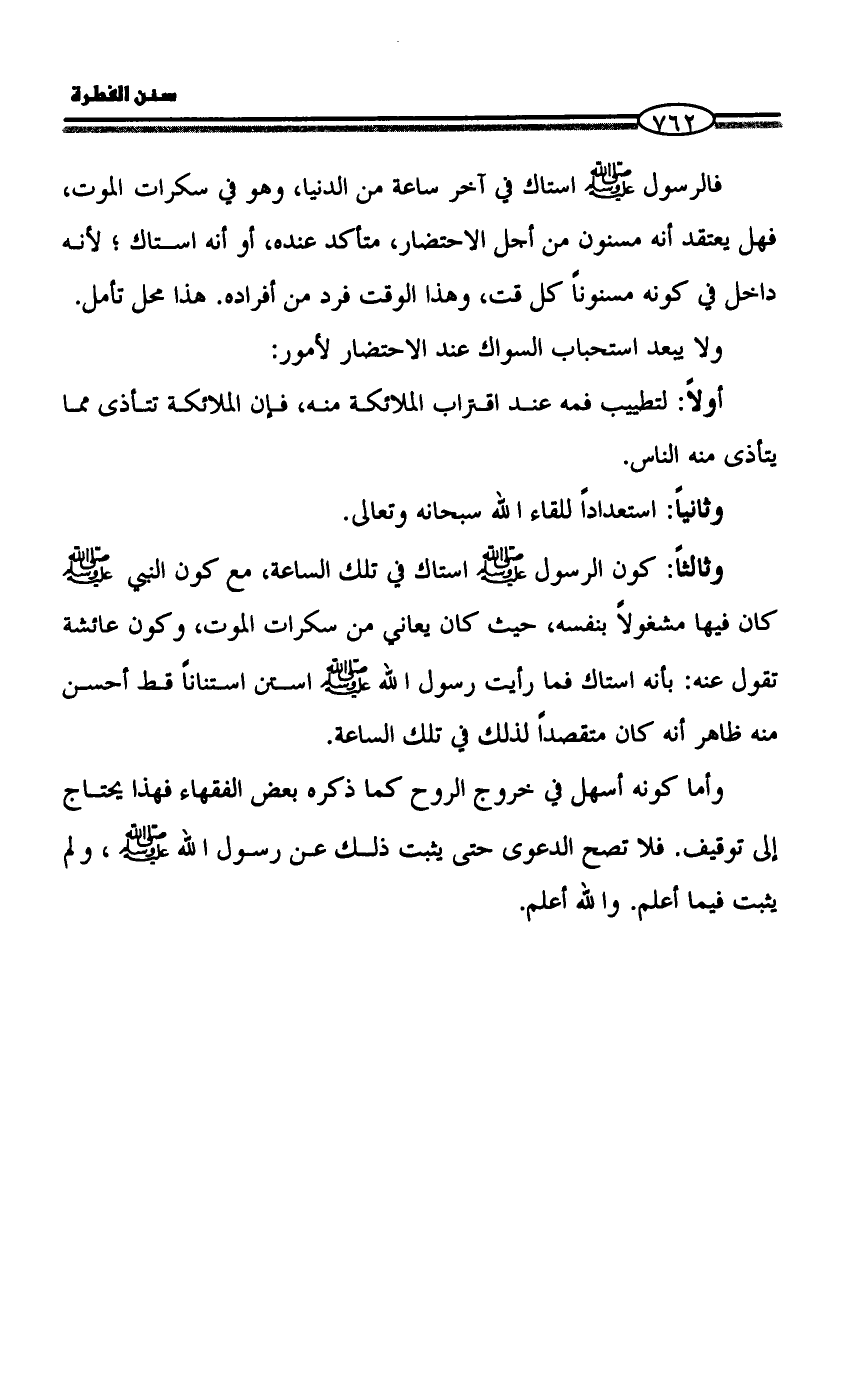 سنن الفطرة
٧٦٢
فالرسول ﷺ استاك في آخر ساعة من الدنيا، وهو في سكرات الموت،
فهل يعتقد أنه مسنون من أجل الاحتضار، متأكد عنده، أو أنه استاك ؛ لأنه
داخل في كونه مسنوناً كل قت، وهذا الوقت فرد من أفراده. هذا محل تأمل.
ولا يبعد استحباب السواك عند الاحتضار لأمور:
أولاً: لتطييب فمه عند اقتراب الملائكة منه، فإن الملائكة تتأذى مما
يتأذى منه الناس.
وثانياً: استعداداً للقاء الله سبحانه وتعالى.
وثالثاً: كون الرسول ﷺ استاك في تلك الساعة، مع كون النبي ﷺ
كان فيها مشغولاً بنفسه، حيث كان يعاني من سكرات الموت، وكون عائشة
تقول عنه: بأنه استاك فما رأيت رسول الله ﷺ استن استناناً قط أحسن
منه ظاهر أنه كان متقصداً لذلك في تلك الساعة.
وأما كونه أسهل في خروج الروح كما ذكره بعض الفقهاء فهذا يحتاج
إلى توقيف. فلا تصح الدعوى حتى يثبت ذلك عن رسول الله ﷺ ، ولم
يثبت فيما أعلم. والله أعلم.